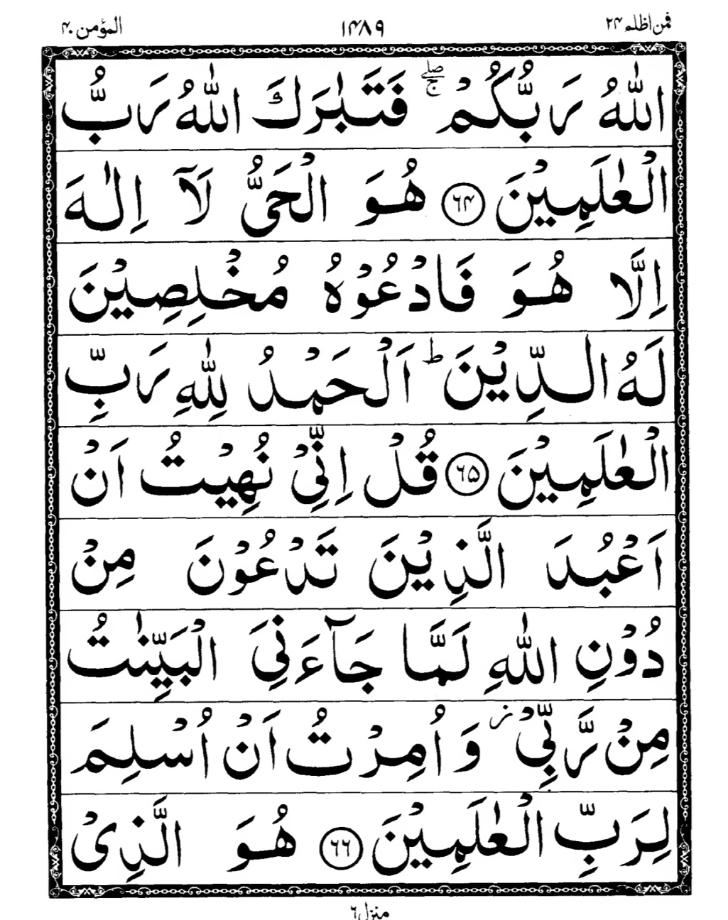 فمن اظلم ٢٤ ١٤٨٩ المؤمن ٤٠
اللّٰهُ رَبُّكُمْ ۖۚ فَتَبٰرَكَ اللّٰهُ رَبُّ
الْعٰلَمِيْنَ ﴿٦٤﴾ هُوَ الْحَيُّ لَآ اِلٰهَ
اِلَّا هُوَ فَادْعُوْهُ مُخْلِصِيْنَ
لَهُ الدِّيْنَ ؕ اَلْحَمْدُ لِلّٰهِ رَبِّ
الْعٰلَمِيْنَ ﴿٦٥﴾ قُلْ اِنِّيْ نُهِيْتُ اَنْ
اَعْبُدَ الَّذِيْنَ تَدْعُوْنَ مِنْ
دُوْنِ اللّٰهِ لَمَّا جَآءَنِيَ الْبَيِّنٰتُ
مِنْ رَّبِّيْ ؗ وَاُمِرْتُ اَنْ اُسْلِمَ
لِرَبِّ الْعٰلَمِيْنَ ﴿٦٦﴾ هُوَ الَّذِيْ
منزل ٦